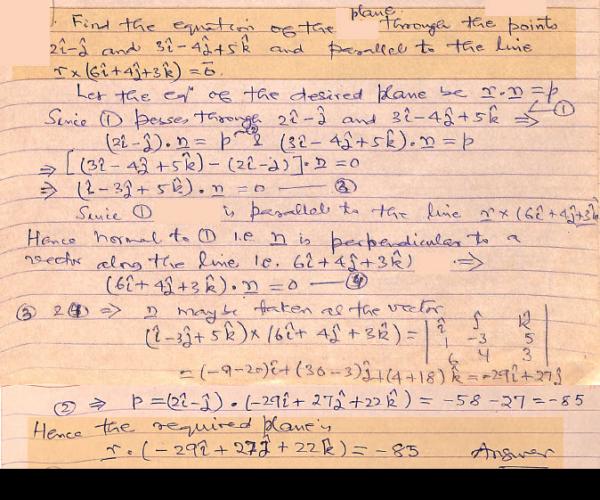 Find the equation of the plane through the points
2î-ĵ and 3î-4ĵ+5k̂ and parallel to the line
r×(6î+4ĵ+3k̂)=ō.
Let the eqⁿ of the desired plane be r.n=p
①
Since ① passes through 2î-ĵ and 3î-4ĵ+5k̂ ⇒
(2î-ĵ).n=p ② & (3î-4ĵ+5k̂).n=p
⇒ [(3î-4ĵ+5k̂)-(2î-ĵ)].n=0
⇒ (î-3ĵ+5k̂).n=0 — ③
Since ① is parallel to the line r×(6î+4ĵ+3k̂
Hence normal to ① i.e n is perpendicular to a
vector along the line i.e. 6î+4ĵ+3k̂) ⇒
(6î+4ĵ+3k̂).n=0 — ④
③ & ④ ⇒ n may be taken as the vector
(î-3ĵ+5k̂)×(6î+4ĵ+3k̂) = | î ĵ k̂
1 -3 5
6 4 3 |
=(-9-20)î+(30-3)ĵ+(4+18)k̂=-29î+27ĵ
② ⇒ p=(2î-ĵ).(-29î+27ĵ+22k̂)=-58-27=-85
Hence the required plane is
r.(-29î+27ĵ+22k̂)=-85 Answer